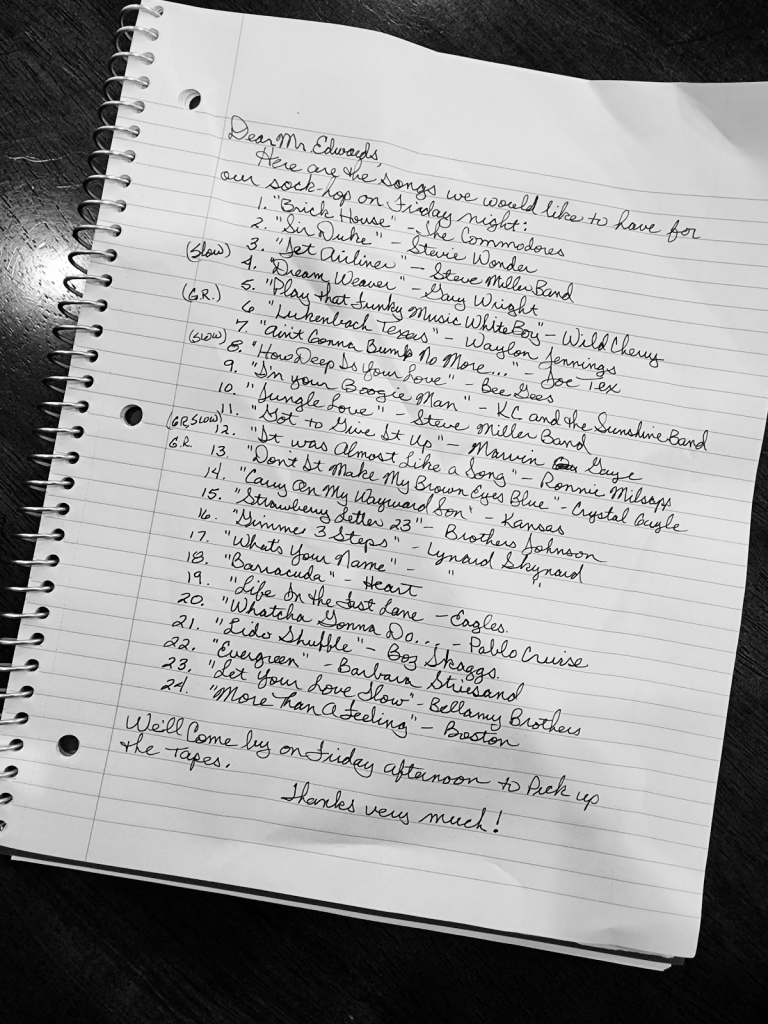 Dear Mr. Edwards,
Here are the songs we would like to have for
our sock-hop on Friday night:
1. "Brick House" - The Commodores
2. "Sir Duke" - Stevie Wonder
3. "Jet Airliner" - Steve Miller Band
(Slow) 4. "Dream Weaver" - Gary Wright
5. "Play that Funky Music White Boy" - Wild Cherry
(G.R.) 6 "Lukenbach Texas" - Waylon Jennings
7. "ain't Gonna Bump No More..." - Joe Tex
(Slow) 8. "How Deep Is Your Love" - Bee Gees
9. "I'm your Boogie Man" - KC and the Sunshine Band
10. "Jungle Love" - Steve Miller Band
11. "Got to Give It Up" - Marvin Gaye
(GR, Slow) 12. "It was Almost Like a Song" - Ronnie Milsapp
G.R. 13. "Don't It Make My Brown Eyes Blue" - Crystal Gayle
14. "Carry On My Wayward Son" - Kansas
15. "Strawberry Letter 23" - Brothers Johnson
16. "Gimme 3 Steps" - Lynard Skynard
17. "What's Your Name" - " "
18. "Barracuda" - Heart
19. "Life In the Fast Lane - Eagles.
20. "Whatcha Gonna Do... - Pablo Cruise
21. "Lido Shuffle" - Boz Skaggs.
22. "Evergreen" - Barbara Striesand
23. "Let Your Love Flow" - Bellamy Brothers
24. "More Than A Feeling" - Boston
We'll Come by on Friday afternoon to Pick up
the Tapes.
Thanks very much!